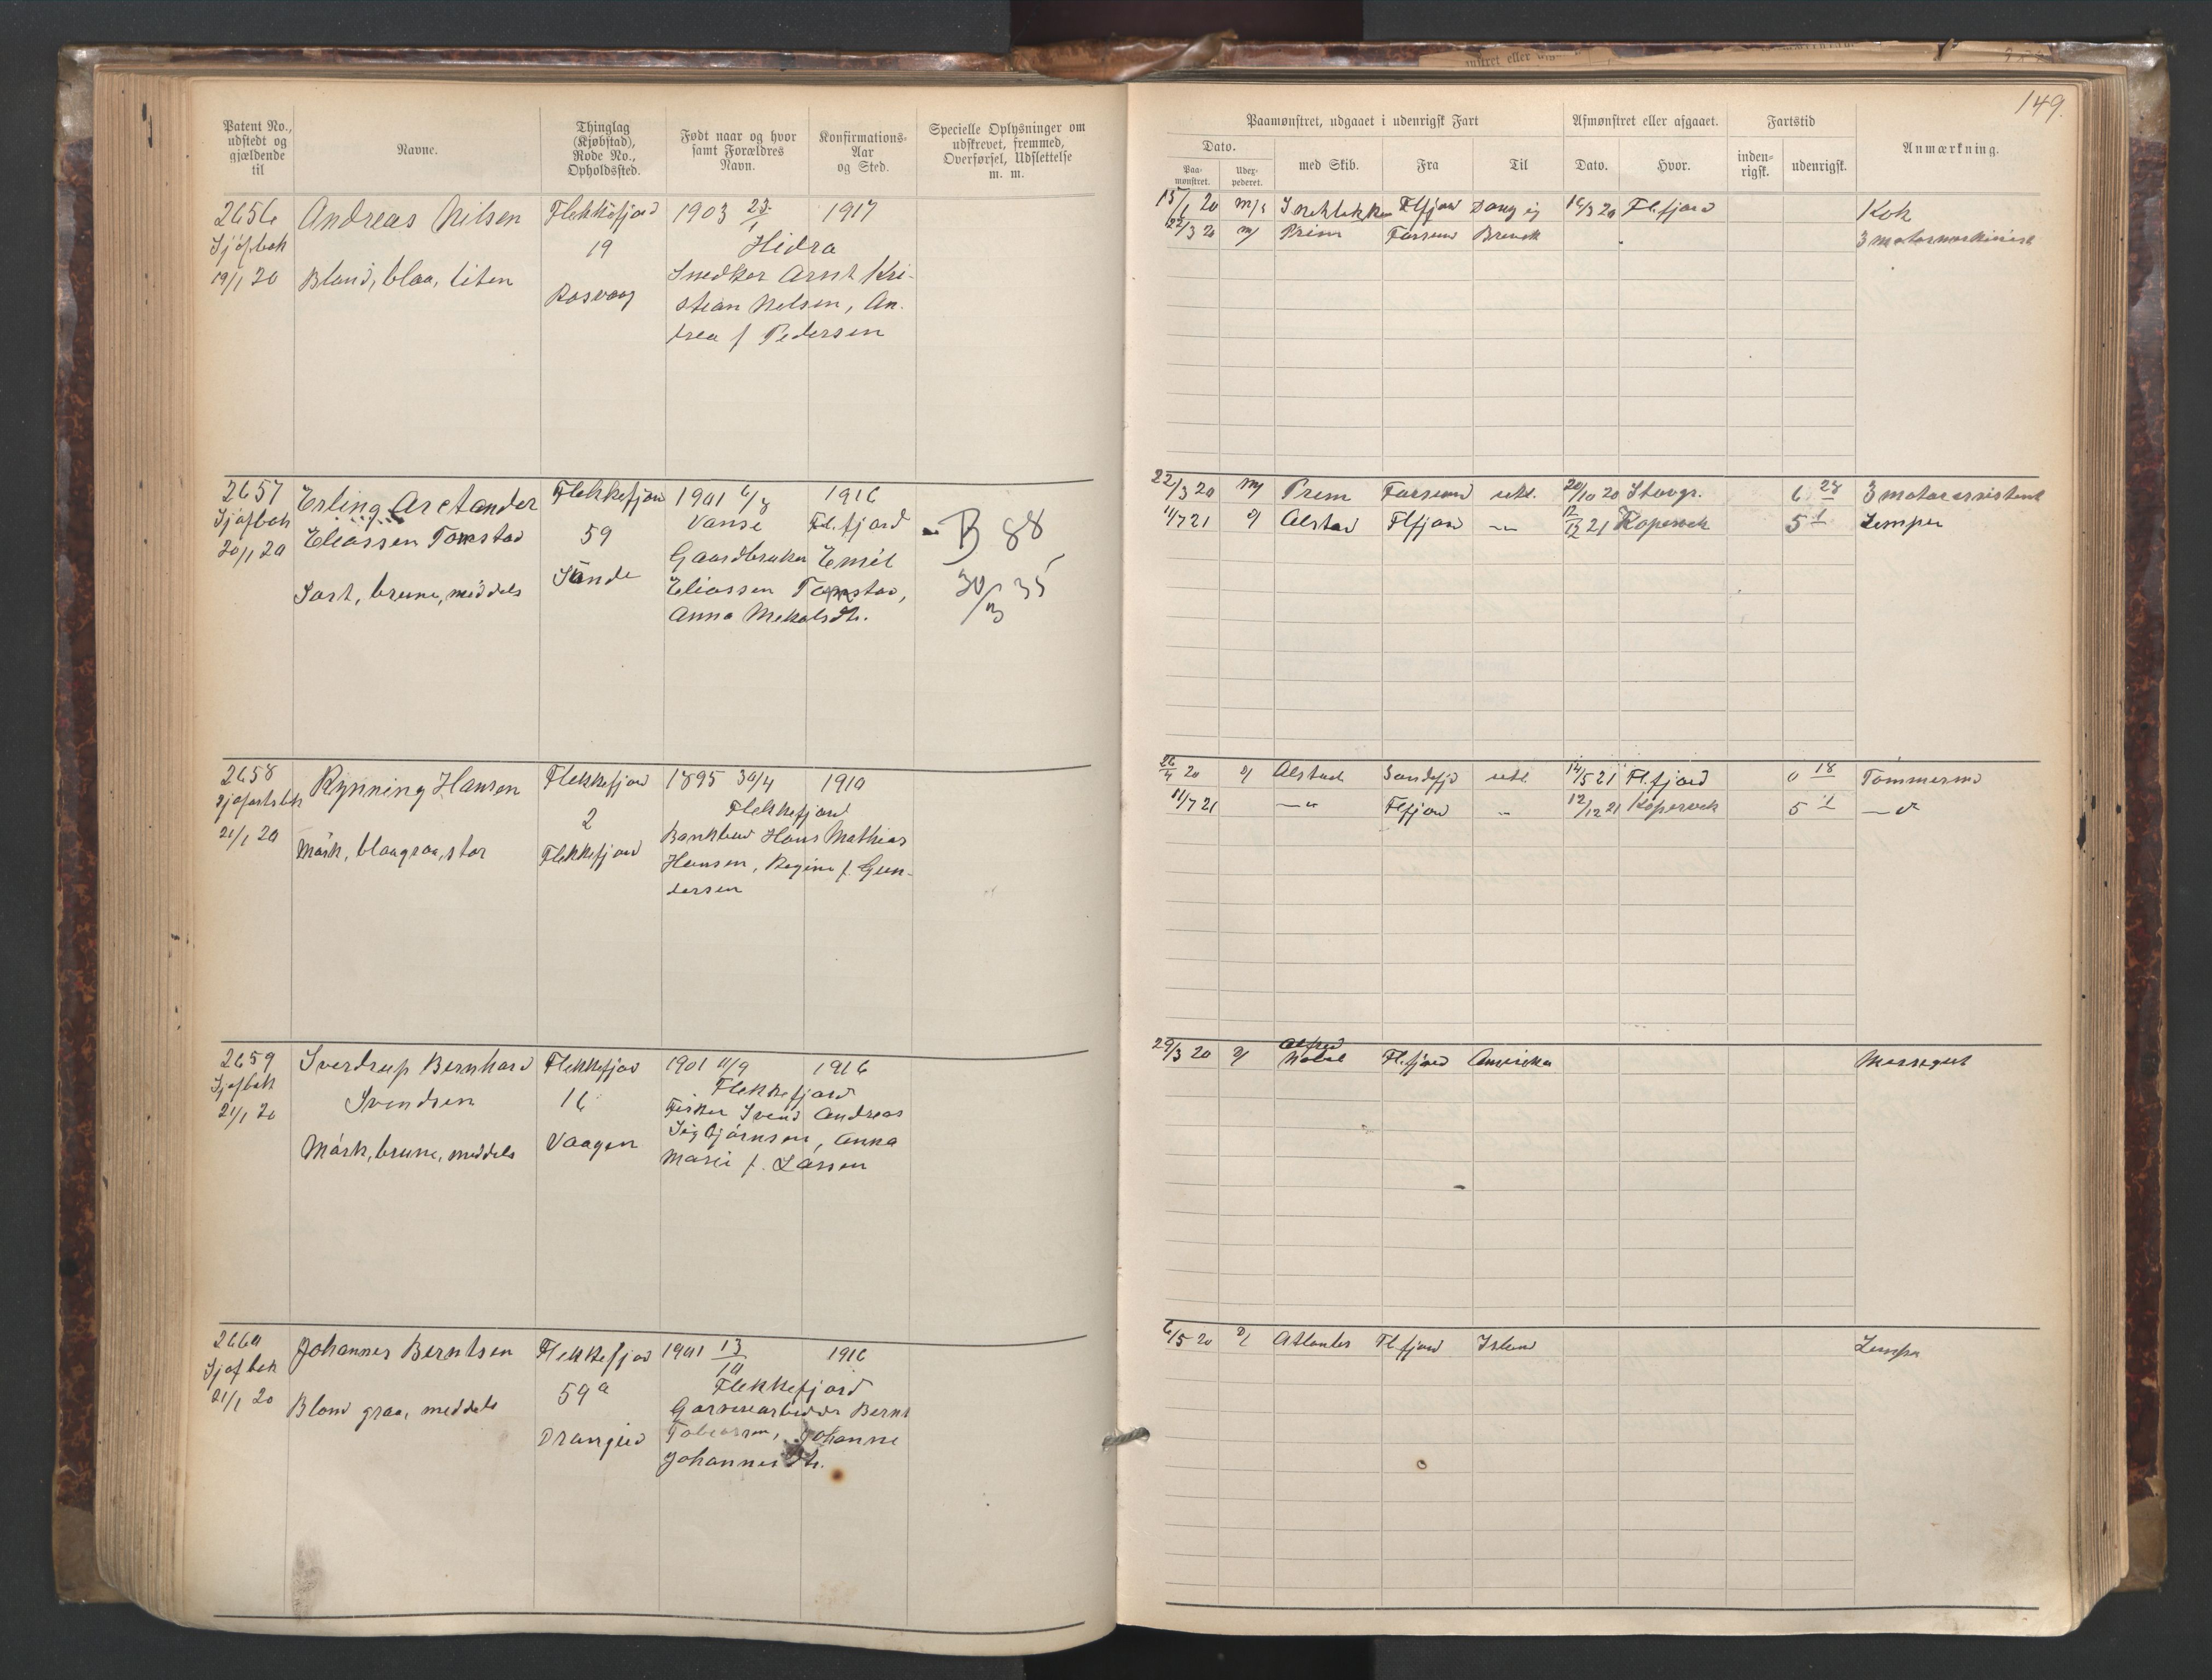 149.
Patent No., udstedt og gjældende til
Navne.
Thinglag (Kjøbstad), Rode No., Opholdssted.
Født naar og hvor samt Forældres Navn.
Konfirmations-Aar og Sted.
Specielle Oplysninger om udskrevet, fremmed, Overførsel, Udslettelse m. m.
Paamønstret, udgaaet i udenrigsk Fart
Dato.
Paa-mønstret.
Udex-pederet.
med Skib.
Fra
Til
Afmønstret eller afgaaet.
Dato.
Hvor.
Fartstid
inden-rigsk.
udenrigsk.
Anmærkning.
2656 Andreas Nilsen Flekkefjord 1903 23/1 1917
Sjøfbok 19 Hidra
19/1 20 Blond, blaa, liten Rasvaag Snedker Arnt Kri-
stian Nelsen, An-
drea f Pedersen
15/1 20 m/s Flfjord 16/3 20 Flfjord Kok
22/3 20 m/ Prim Farsund 3 motormaskinist
2657 Erling Arctander Flekkefjord 1901 6/8 1916
Sjøfbok Eliassen Tomstad 59 Vanse Fl.fjord
20/1 20 Gaardbruker Emil
Sort, brune, middels Sande Eliassen Tomstad,
Anna
B 88
30/3 35
22/3 20 m/ Prim Farsund utl. 20/10 20 Stavgr. 6 28 3 motorassistent
11/7 21 Alstad Flfjord -"- 12/12 21 Kopervik 5 1 Lemper
2658 Rynning Hansen Flekkefjord 1895 30/4 1910
Sjøfartsbok 2 Flekkefjord
21/1 20 Mørk, blaagraa, stor Flekkefjord Bankbud Hans Mathias
Hansen, Regine f. Gun-
dersen
26/4 20 Alstad Sandefjd utl. 14/5 21 Fl.fjord 0 18 Tømmermd
11/7 21 -"- Flfjord -"- 12/12 21 Kopervik 5 1 -"-
2659 Sverdrup Bernhard Flekkefjord 1901 11/9 1916
Sjøfbok Svendsen 16 Flekkefjord
21/1 20 Fisker Svend Andreas
Mørk, brune, middels Vaagen Sigbjørnsen, Anna
Marie f. Larsen
29/3 20 Alfred Nobel Fl.fjord Amerika Messegut
2660 Johannes Berntsen Flekkefjord 1901 13/10 1916
Sjøfbok 59 a Flekkefjord
21/1 20 Blond graa, middels Garveriarbeider Bernt
Drangeid Tobiassen, Johanne
Johannesdtr.
6/5 20 Atlantes Fl.fjord Island Lemper